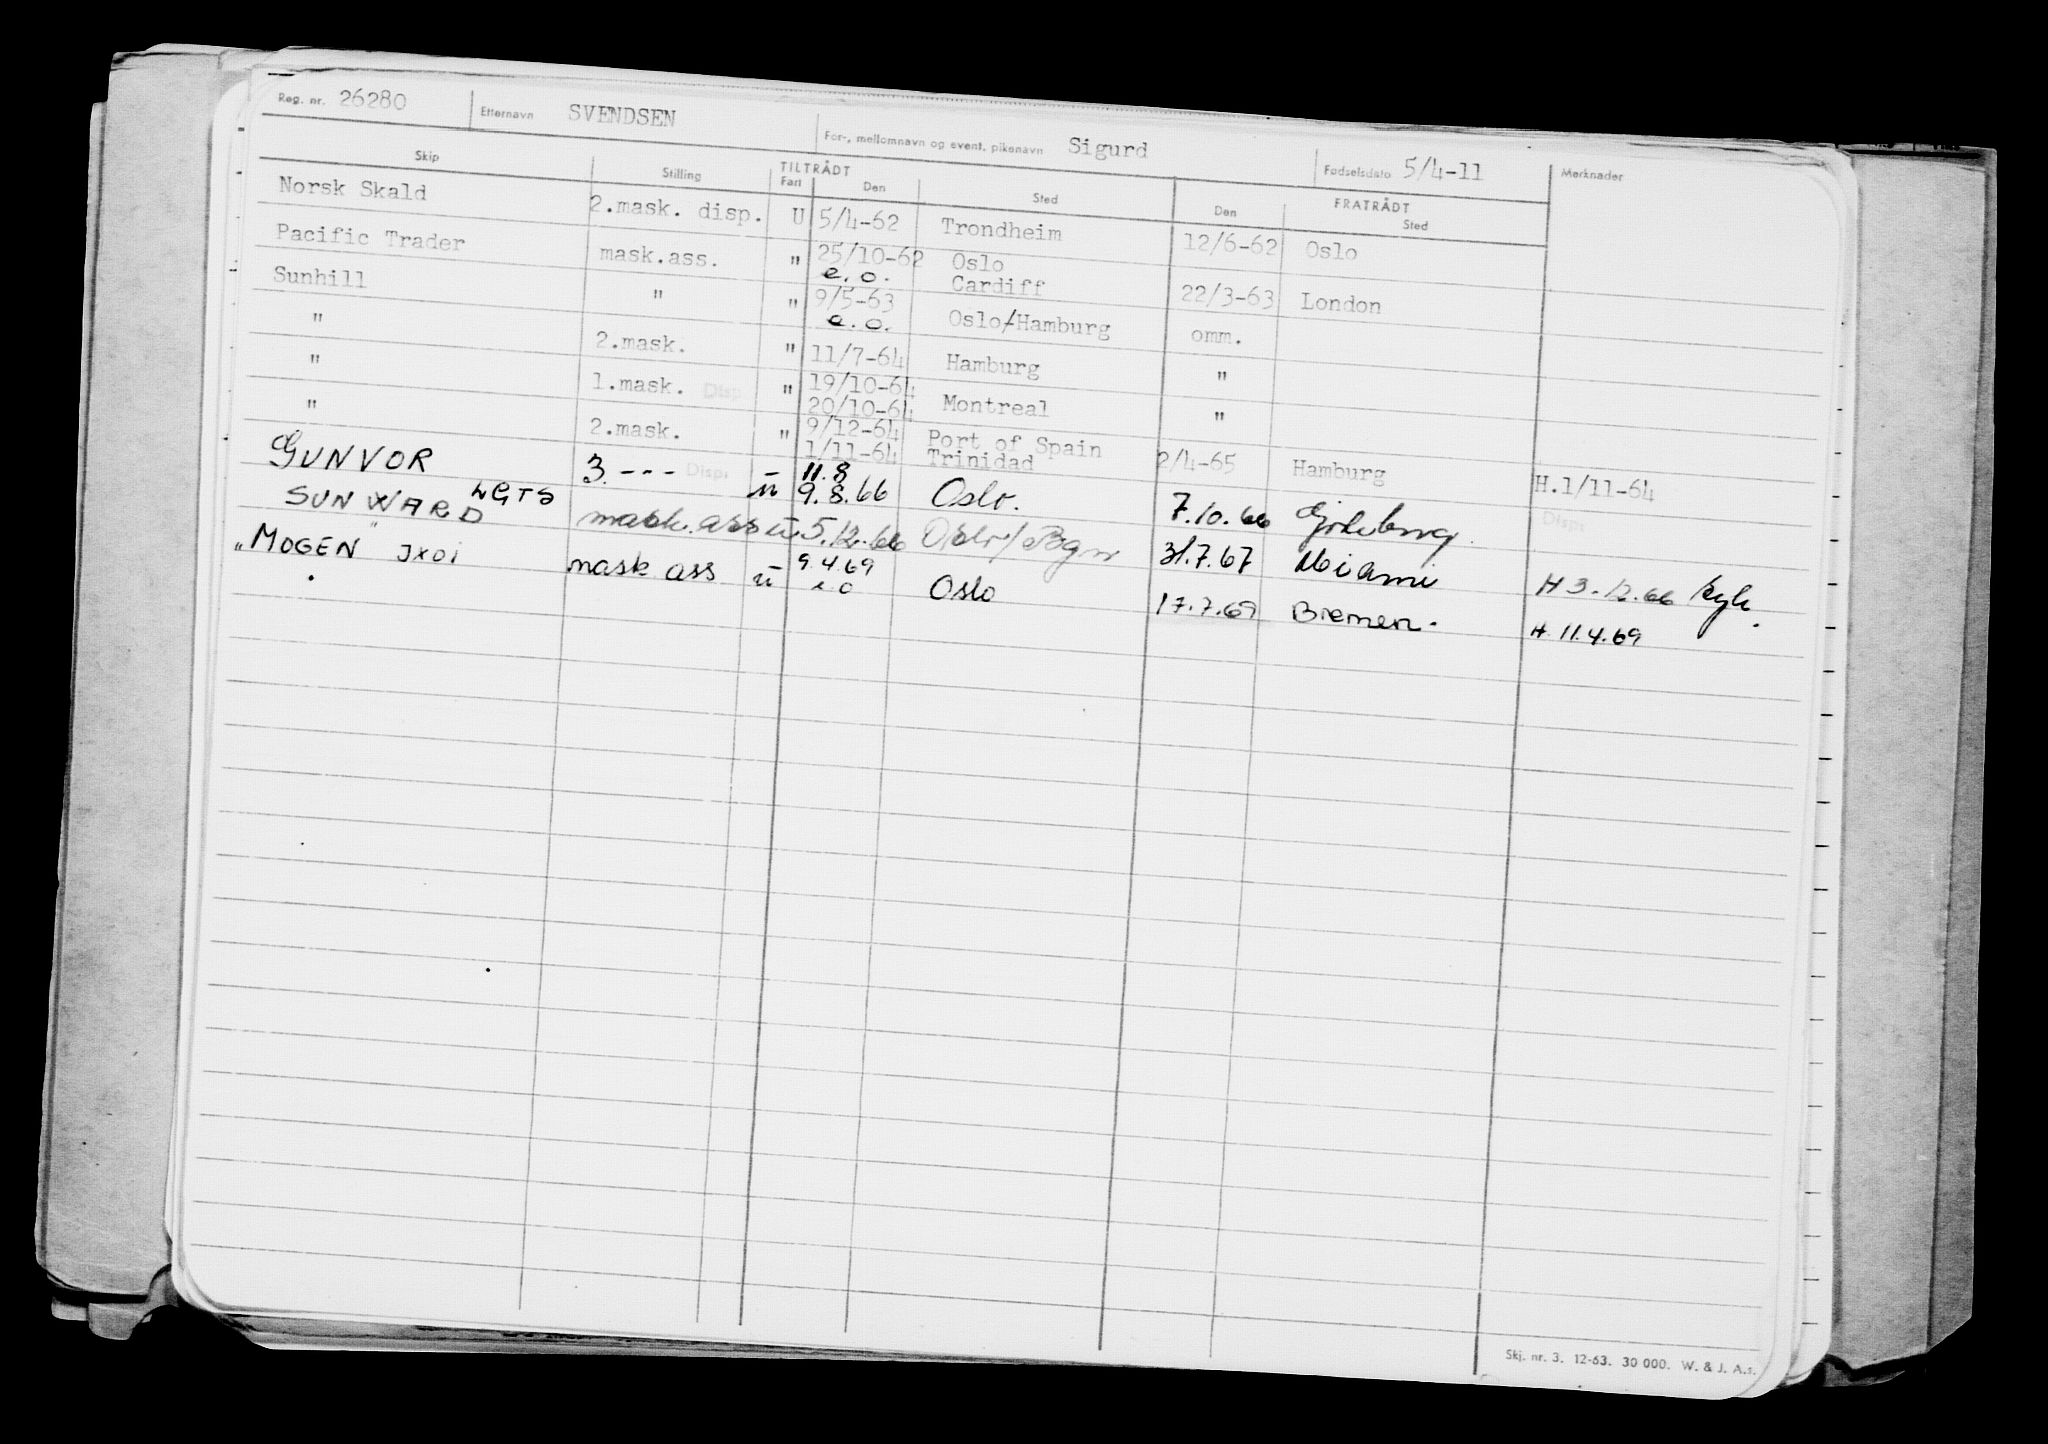 Reg. nr. 26280 Etternavn SVENDSEN For-, mellomnavn og event. pikenavn Sigurd Fødselsdato 5/4-11 Merknader
Skip Stilling TILTRÅDT Fart Den Sted FRATRÅDT Den Sted
Norsk Skald 2.mask. disp. U 5/4-62 Trondheim 12/6-62 Oslo
Pacific Trader mask.ass. " 25/10-62 e.o. Oslo Cardiff 22/3-63 London
Sunhill " " 9/5-63 e.o. Oslo/Hamburg omm.
" 2.mask. " 11/7-64 Hamburg "
" 1.mask. Disp " 19/10-64 20/10-64 Montreal "
" 2.mask. " 9/12-64 1/11-64 Port of Spain Trinidad 2/4-65 Hamburg H.1/11-64
GUNVOR LGTS 3. --- Disp. u 11.8 9.8.66 Oslo. 7.10.66 Gøteborg. Disp.
SUNWARD mask. ass u 5.12.66 Oslo/Bgn 31.7.67 Miami H 3.12.66
"MOGEN" JXOI mask ass u 9.4.69 e o Oslo 17.7.69 Bremen. H. 11.4.69
Skj. nr. 3. 12-63. 30 000. W. & J. A.s.